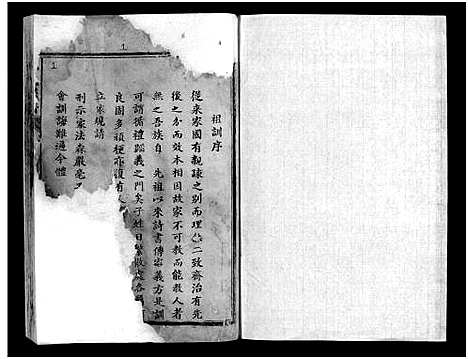 祖訓序
從來家國有親疎之別而理無二致齊治有先
後之分而效本相因故家不可教而能教人者
無之吾族自 先祖以來詩書傳家義方是訓
可謂循禮蹈義之門矣子姓日繁散處各
良固多頑梗亦復有人
立家規請
刑示家法森嚴毫
會訓誨雖過今體
1
1